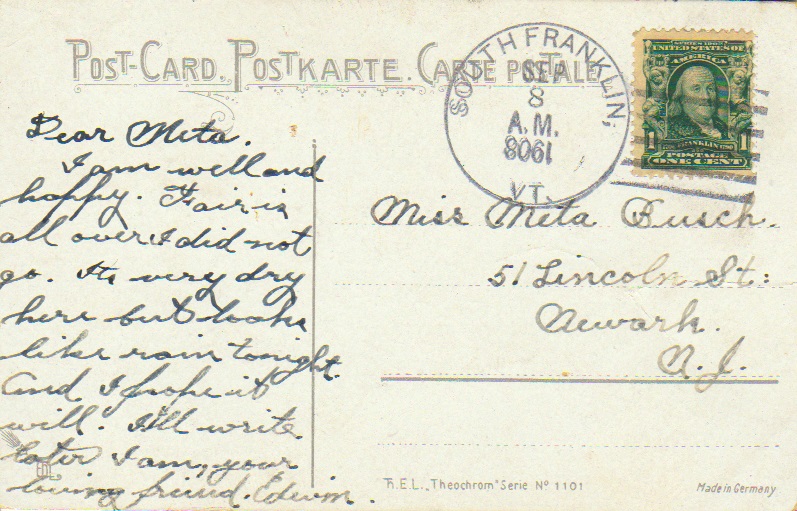 POST-CARD. POSTKARTE. CARTE POSTALE
SOUTH FRANKLIN,
SEP
8
A.M.
1908
VT.
SERIES 1902
UNITED STATES OF
AMERICA
1 1
POSTAGE
ONE CENT
Dear Meta.
I am well and
happy. Fair is
all over I did not
go. Its very dry
here but looks
like rain tonight.
and I hope it
will. I'll write
later I am, your
loving friend. Edwin.
Miss Meta Busch.
51 Lincoln St:
Newark.
N. J.
Th.E.L. „Theochrom" Serie Nº 1101
Made in Germany